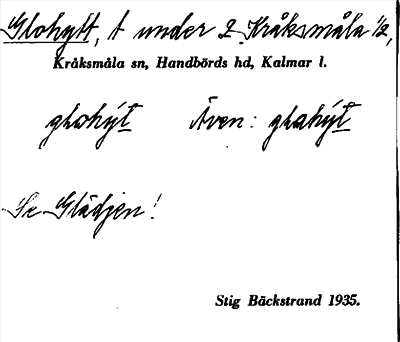 Glohytt, t under 2 Kråksmåla 1/2,
Kråksmåla sn, Handbörds hd, Kalmar l.
glohyt Även: glahyt
Se Glädjen!
Stig Bäckstrand 1935.